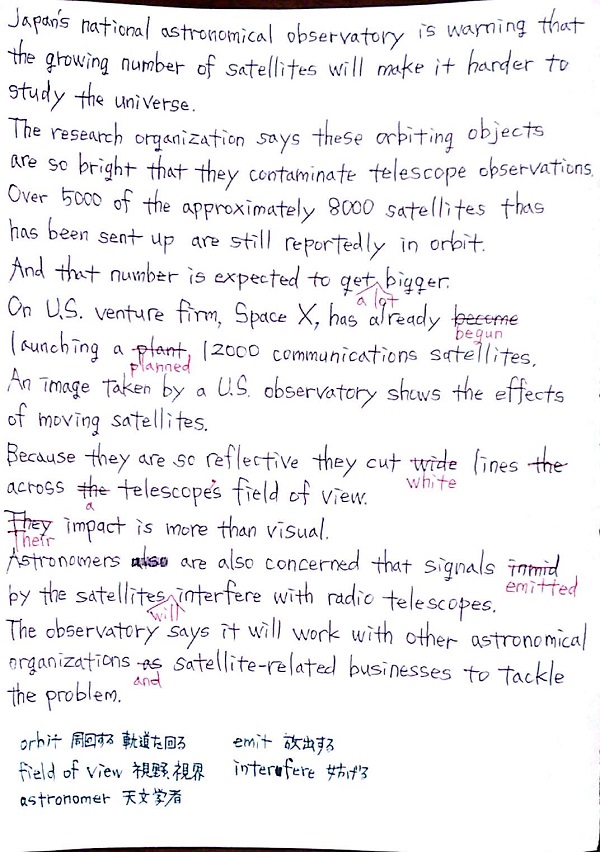 Japan's national astronomical observatory is warning that
the growing number of satellites will make it harder to
study the universe.
The research organization says these orbiting objects
are so bright that they contaminate telescope observations.
Over 5000 of the approximately 8000 satellites thas
has been sent up are still reportedly in orbit.
And that number is expected to get bigger.
a lot
On U.S. venture firm, Space X, has already become
begun
launching a plant 12000 communications satellites.
planned
An image taken by a U.S. observatory shows the effects
of moving satellites.
Because they are so reflective they cut wide lines the
white
across the telescope's field of view.
a
They impact is more than visual.
Their
Astronomers also are also concerned that signals inmid
emitted
by the satellites interfere with radio telescopes.
will
The observatory says it will work with other astronomical
organizations as satellite-related businesses to tackle
and
the problem.
orbit 周回する 軌道を回る emit 放出する
field of view 視野、視界 interfere 妨げる
astronomer 天文学者